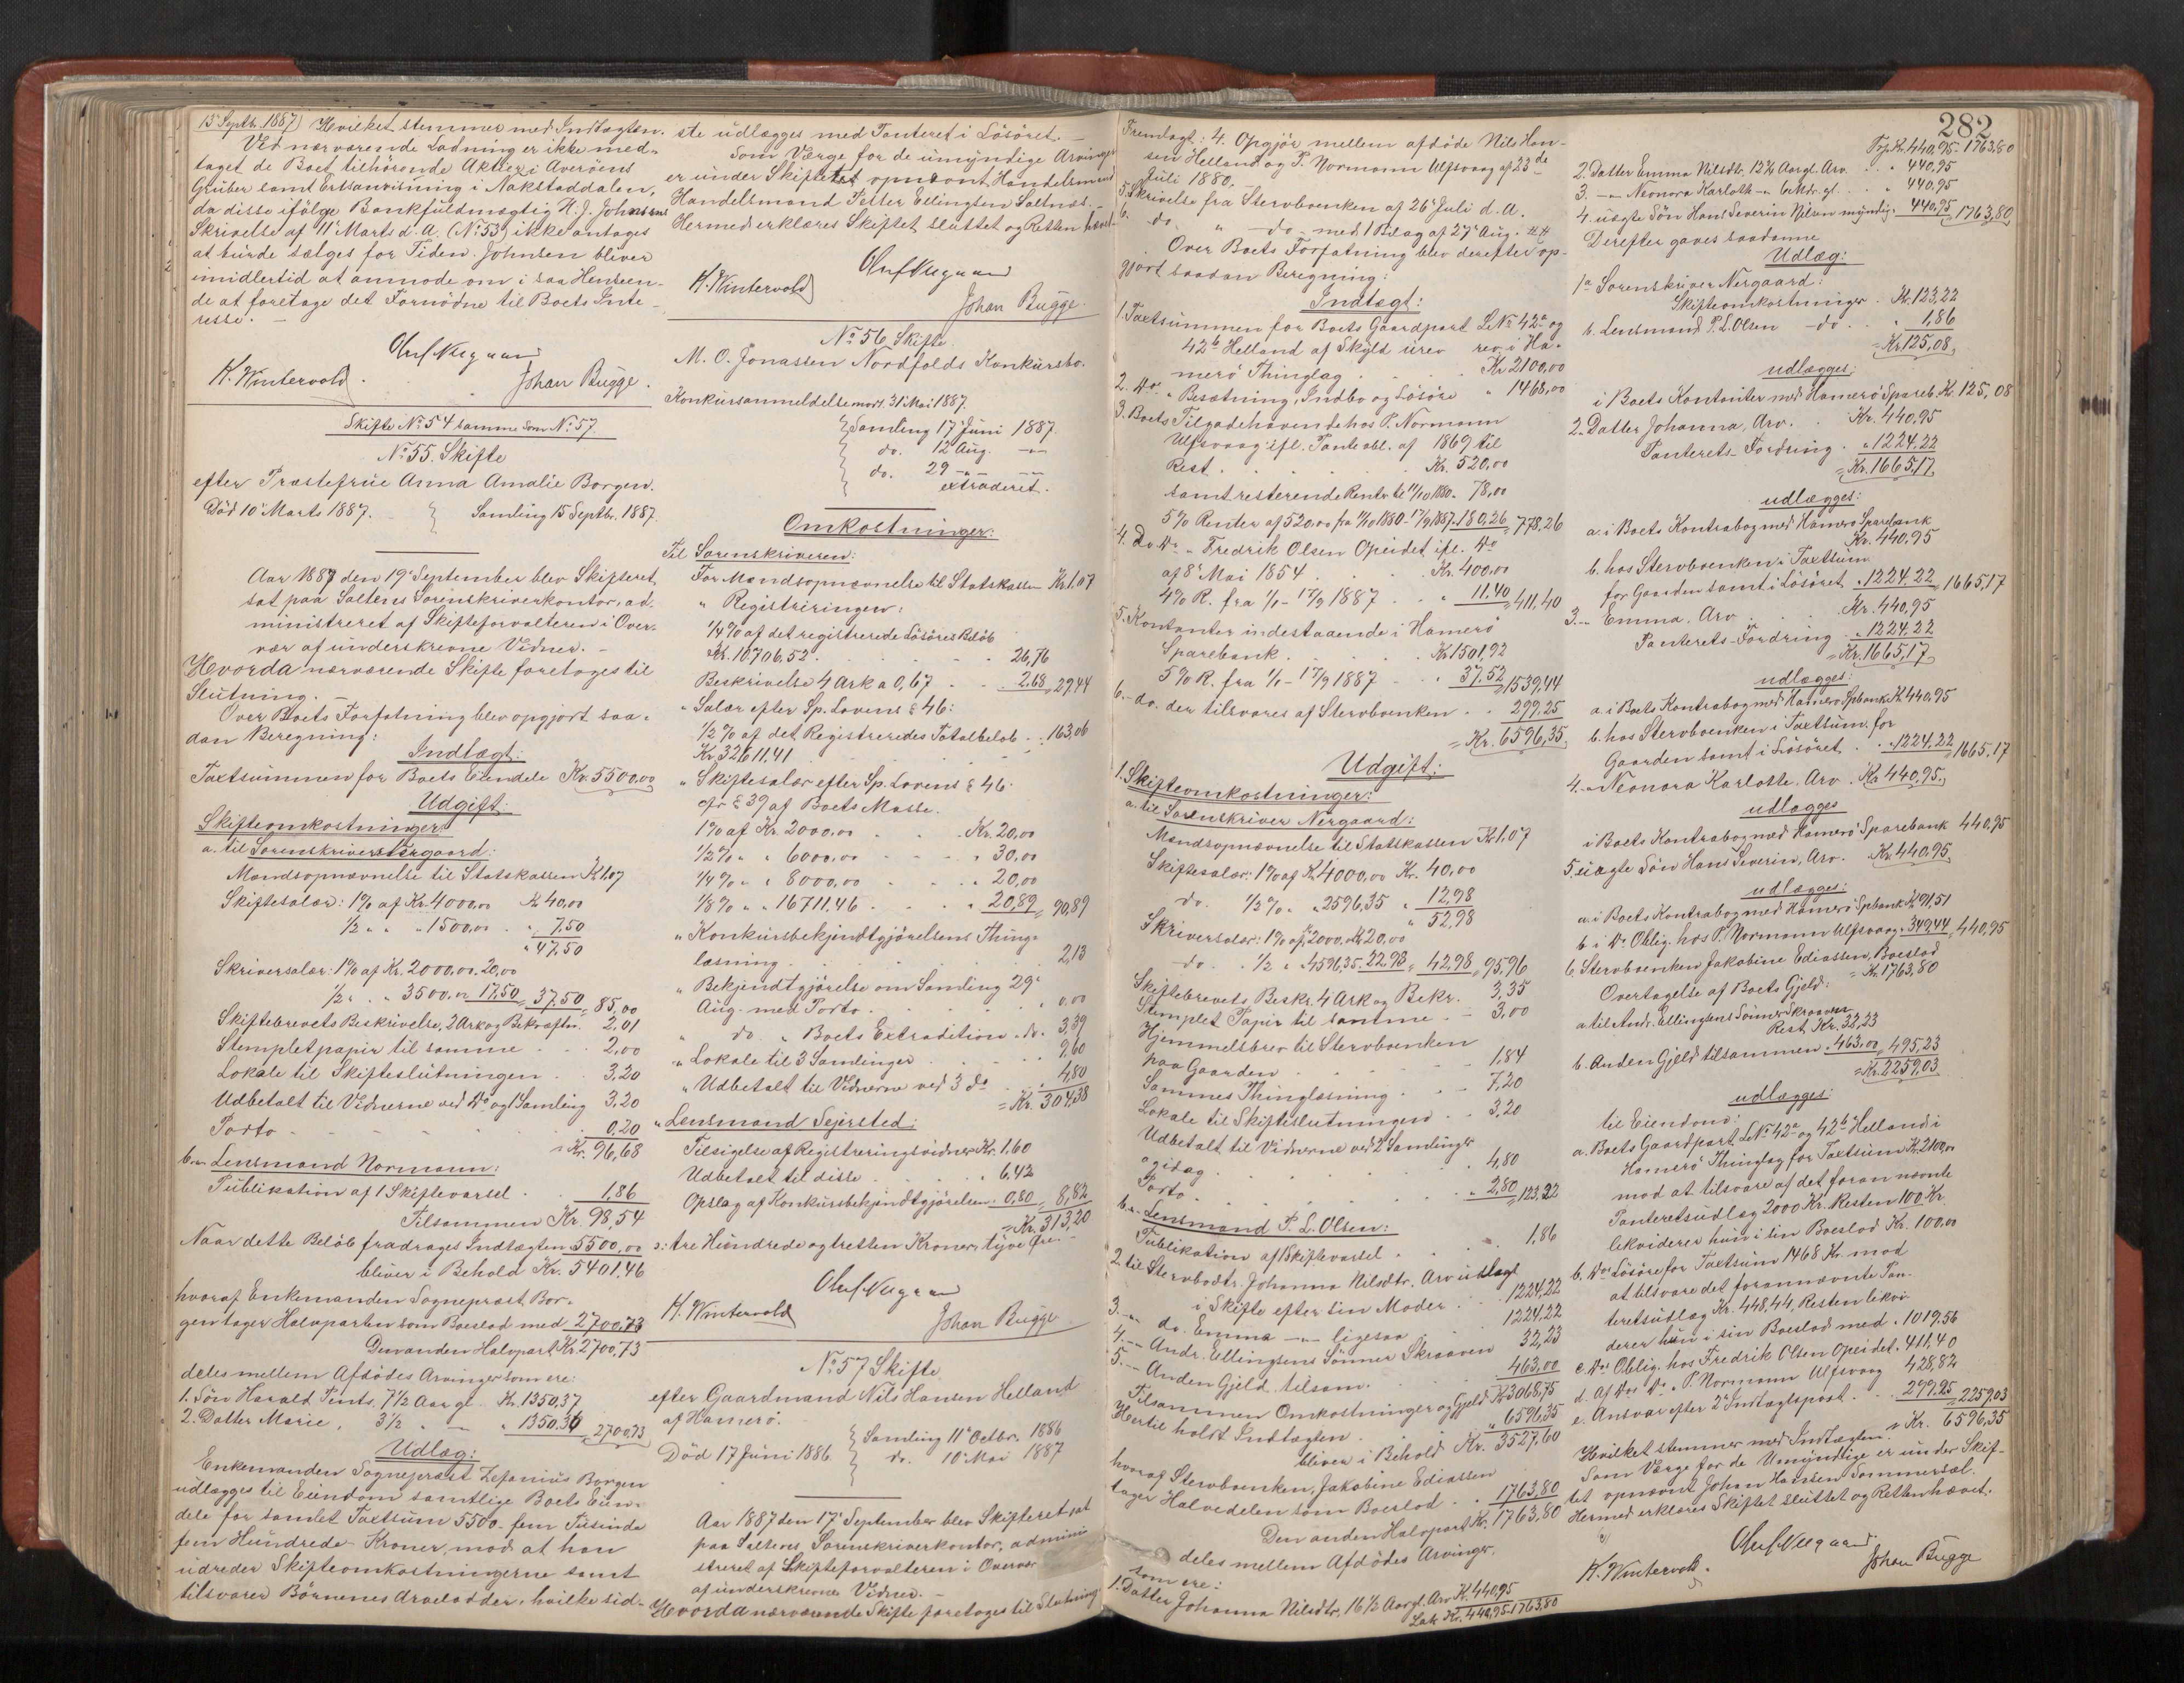 15 Septb. 1887) Hvilket stemmer med Indtægten.
Ved nærværende Ladning er ikke med-
taget de Boet tilhörende Aktier i Averöens
Gruber samt Ertsanvisning i Nakstaddalen,
da disse ifölge Bankfuldmægtig H. J. Johnsens
Skrivelse af 11' Marts d. A. (No 53) ikke antages
at burde sælges for Tiden. Johnsen bliver
imidlertid at anmode om i saa Henseen-
de at foretage det Fornödne til Boets Inte-
resse. –
K. Wintervold.
Johan Bugge.
Skifte No 54 samme som No 57.
No 55. Skifte
efter Præstefrue Anna Amalie Borgen.
Död 10' Marts 1887. Samling 15 Septbr. 1887.
Aar 1887 den 19' September blev Skifteret
sat paa Saltens Sorenskriverkontor, ad-
ministreret af Skifteforvalteren i Over-
vær af underskrevne Vidner. –
Hvorda nærværende Skifte foretoges til
Slutning. –
Over Boets Forfatning blev opgjort saa-
dan Beregning:
Indtægt:
Taxtsummen for Boets Eiendele Kr. 5500,00
Udgift:
Skifteomkostninger:
a. til Sorenskriver Nergaard:
Mandsopnævnelse til Statskassen Kr 1.07
Skiftesalær: 1% af Kr. 4000,00 Kr 40,00
1/2 " " " 1500,00 " 7,50
" 47,50
Skriversalær: 1% af Kr. 2000,00. 20,00
1/2 " " " 3500,00 17,50 = 37,50 = 85,00
Skiftebrevets Beskrivelse, 2 Ark og Bekræftn. 2,01
Stemplet papir til samme . . 2,00
Lokale til Skifteslutningen . . 3,20
Udbetalt til Vidnerne ved Do og 1 Samling 3,20
Porto . . . . 0,20
= Kr. 96,68
b. " Lensmand Normann:
Publikation af 1 Skiftevarsel . . 1,86
Tilsammen Kr. 98,54
Naar dette Belöb fradrages Indtægten 5500,00
bliver i Behold Kr. 5401,46
hvoraf Enkemanden Sogneprest Bor-
gen tager Halvparten som Boeslod med 2700,73
Den anden Halvpart Kr. 2700,73
deles mellem Afdödes Arvinger som ere:
1. Sön Harald 7 1/2 Aar gl. Kr. 1350,37
2. Datter Marie, 3 1/2 " – " 1350.36 = 2700,73
Udlæg:
Enkemanden Sogneprest Zefanius Borgen
udlægges til Eiendom samtlige Boets Eien-
dele for samlet Taxtsum 5500 - fem Tusinde
fem Hundrede Kroner, mod at han
udreder Skifteomkostningerne samt
tilsvarer Börnenes Arvelodder, hvilke sid-
ste udlægges med Panteret i Lösöret. –
Som Værge for de umyndige Arvinger
er under Skiftet opnævnt Handelsmand
Handelsmand Petter Ellingsen Saltnæs. –
Hermed erklæres Skiftet sluttet og Retten hævet
K. Wintervold
Johan Bugge.
No 56 Skifte
M. O. Jonassen Nordfolds Konkursbo.
Konkursanmeldelse modt. 31' Mai 1887.
Samling 17' Juni 1887.
do. 12' Aug. –"–
do. 29 –"– –"–
extraderet.
Omkostninger:
Til Sorenskriveren:
For Mandsopnævnelse til Statskassen Kr. 1.07
" Registreringen:
1/4 % af det registrerede Lösöres Belöb
Kr. 10706.52. . . . . 26,76
Beskrivelse 4 Ark a 0,67 . . 2.68 = 29,44
" Salær efter Sp. Lovens § 46:
1/2 % af det Registreredes Totalbelöb . . 163,06
Kr. 32611,41
" Skiftesalær efter Sp. Lovens § 46.
cfr. § 39 af Boets Masse.
1% af Kr. 2000,00 . . . Kr. 20,00
1/2% " " 6000,00 - - - " 30,00
1/4% " " 8000,00 . . . " 20,00
1/8% " " 16711,46 . . . " 20,89 = 90,89
" Konkursbekjendtgjörelsens Thing-
læsning . . . . . 2,13
" Bekjendtgjörelse om Samling 29'
Aug. med Porto . . . . " 0,00
" do. " Boets Extradition. do. 3,39
" Lokale til 3 Samlinger . . . 9,60
" Udbetalt til Vidnerne ved 3 do . . 4,80
= Kr. 304,38
" Lensmand Sejersted:
Tilsigelse af Registreringsvidner Kr. 1.60
Udbetalt til disse . . . " 6.42
Opslag af Konkursbekjendtgjörelsen. 0,80 = 8,82
= Kr. 313,20
ɔ: tre Hundrede og tretten Kroner, tyve Öre. –
K. Wintervold
Johan Bugge
No 57 Skifte
efter Gaardmand Nils Hansen Helland
af Hamerö.
Död 17 Juni 1886. Samling 11' Octbr. 1886
do. 10' Mai 1887
Aar 1887 den 17' September blev Skifteret sat
paa Saltens Sorenskriverkontor, admini
streret af Skifteforvalteren i Overvær
af underskrevne Vidner. –
Hvorda nærværende Skifte foretoges til Slutning.
282
Fremlagt: 4. Opgjör mellem afdöde Nils Han-
sen Helland og P. Normann Ulfsvaag af 23de
Juli 1880.
5. Skrivelse fra Stervboenken af 26' Juli d. A.
6. do. " –do– med 1 Bilag af 27' Aug.
Over Boets Forfatning blev derefter op-
gjort saadan Beregning:
Indtægt:
1. Taxtsummen for Boets Gaardpart L No 42a og
42b Helland af Skyld urev rev. i Ha-
merö Thinglag . . . Kr 2100,00
2. Do " Besætning, Indbo og Lösöre " 1468,00
3. Boets Tilgodehavende hos P. Normann
Ulfsvaag ifl. Panteobl. af 1869 til
Rest . . . . . Kr. 520,00
samt resterende Renter til 11/10 1880 - 78,00
5% Renter af 520,00 fra 11/10 1880 - 17/9 1887. 180,26 = 778,26
4. Do Do " Fredrik Olsen Opeidet ifl. Do
af 8' Mai 1854 . . . Kr. 400,00
4% R. fra 1/1 - 17/9 1887 . . " 11.40 = 411,40
5. Kontanter indestaaende i Hamerö
Sparebank . . . . Kr 1501,92
5% R. fra 1/1 - 17/9 1887 . . " 37,52 = 1539,44
6. – do. der tilsvares af Stervboenken . . 299,25
= Kr. 6596,35
Udgift:
1. Skifteomkostninger:
a. til Sorenskriver Nergaard:
Mandsopnævnelse til Statskassen Kr 1.07
Skiftesalær: 1% af Kr 4000,00 Kr. 40,00
do. 1/2% " " 2596,35 " 12,98
" 52,98
Skriversalær: 1% af 2000. Kr 20,00
do. . 1/2 " " 4596,35. 22.98 = 42,98 = 95,96
Skiftebrevets Beskr. 4 Ark og Bekr. 3,35
Stemplet Papir til samme . – 3,00
Hjemmelsbrev til Stervboenken
paa Gaarden . . . . 1,84
Sammes Thinglæsning . . . 7,20
Lokale til Skifteslutningen . . 3,20
Udbetalt til Vidnerne ved 2 Samlinger
og idag . . . . 4,80
Porto . . . . " 2,80 = 123,22
b. " Lensmand P. L. Olsen:
Publikation af 1 Skiftevarsel . . 1,86
2. til Stervbodtr. Johanna Nilsdtr. Arv udlagt
i Skifte efter sin Moder . . 1224,22
3. – " do. Emma –"– ligesaa . . 1224,22
4. – " Andr. Ellingsens Sönner Skraaven 32,23
5. – " Anden Gjeld, tilsam. . . 463,00
Tilsammen Omkostninger og Gjeld Kr 3068,75
Hertil holdt Indtægten . . " 6596,35
bliver i Behold Kr. 3527,60
hvoraf Stervboenken, Jakobine Ediassen
tager Halvedelen som Boeslod . . 1763,80
Den anden Halvpart Kr. 1763,80
deles mellem Afdödes Arvinger,
som ere:
1. Datter Johanna Nilsdtr, 16 1/2 Aar gl. Arv Kr. 440,95
Lat. Kr. 440,95. 1763,80
Trsp. Kr. 440,95. 1763,80
2. Datter Emma Nilsdtr. 12 1/2 Aar gl. Arv. . " 440,95
3. –"– Neonora Karlotte –"– 6 Mdr. gl. . . " 440,95
4. uægte Sön Hans Severin Nilsen myndig. 440,95 = 1763,80
Derefter gaves saadanne
Udlæg:
1a Sorenskriver Nergaard:
Skifteomkostninger . Kr. 123,22
b. Lensmand P. L. Olsen – do. . . " 1,86
= Kr. 125,08
udlægges:
i Boets Kontanter med Hamerö Spareb. Kr. 125,08
2. Datter Johanna, Arv. . Kr. 440,95
Panterets-Fordring . " 1224,22
= Kr. 1665,17
udlægges:
a. i Boets Kontrabog med Hamerö Sparebank
Kr. 440,95
b. hos Stervboenken i Taxtsum
for Gaarden samt i Lösöret. " 1224,22 = 1665,17
3. –"– Emma, Arv . . Kr. 440,95
Panterets-Fordring . " 1224,22
= Kr. 1665,17
udlægges:
a. i Boets Kontrabog med Hamerö Spbank Kr 440,95
b. hos Stervboenken i Taxtsum for
Gaarden samt i Lösöret . . " 1224,22 = 1665,17
4. –"– Neonora Karlotte, Arv . Kr 440,95
udlægges
i Boets Kontrabog med Hamerö Sparebank 440,95
5. uægte Sön Hans Severin, Arv. Kr 440,95
udlægges:
a. i Boets Kontrabog med Hamerö Spbank Kr 91,51
b. i Do Oblig. hos P. Normann Ulfsvaag " 349,44 = 440,95
6. Stervboenken Jakobine Ediassen, Boeslod
= Kr. 1763,80
Overtagelse af Boets Gjeld:
a. til Andr. Ellingsens Sönner Skraaven
Rest Kr. 32,23
b. Anden Gjeld tilsammen " 463,00 = 495,23
= Kr. 2259,03
udlægges:
til Eiendom:
a. Boets Gaardpart L No 42a og 42b Helland i
Hamerö Thinglag for Taxtsum Kr. 2100,00
mod at tilsvare af det foran nævnte
Panteretsudlæg 2000 Kr. Resten 100 Kr.
likviderer hun i sin Boeslod Kr. 100,00
b. Do Lösöre for Taxtsum 1468 Kr. mod
at tilsvare det forannævnte Pan-
teretsudlæg Kr. 448,44, Resten likvi-
derer hun i sin Boeslod med " 1019,56
c. Do Oblig. hos Fredrik Olsen Opeidet. 411,40
d. Af Do Do " P. Normann Ulfsvaag 428,82
e. Ansvar efter 2' Indtægtspost . . 299,25 = 2259,03
= Kr. 6596,35
Hvilket stemmer med Indtægten.
Som Værge for de Umyndige er under Skif-
tet opnævnt Johan Hansen Sommersæl.
Hermed erklæres Skiftet sluttet og Retten hævet.
K. Wintervold.
Johan Bugge